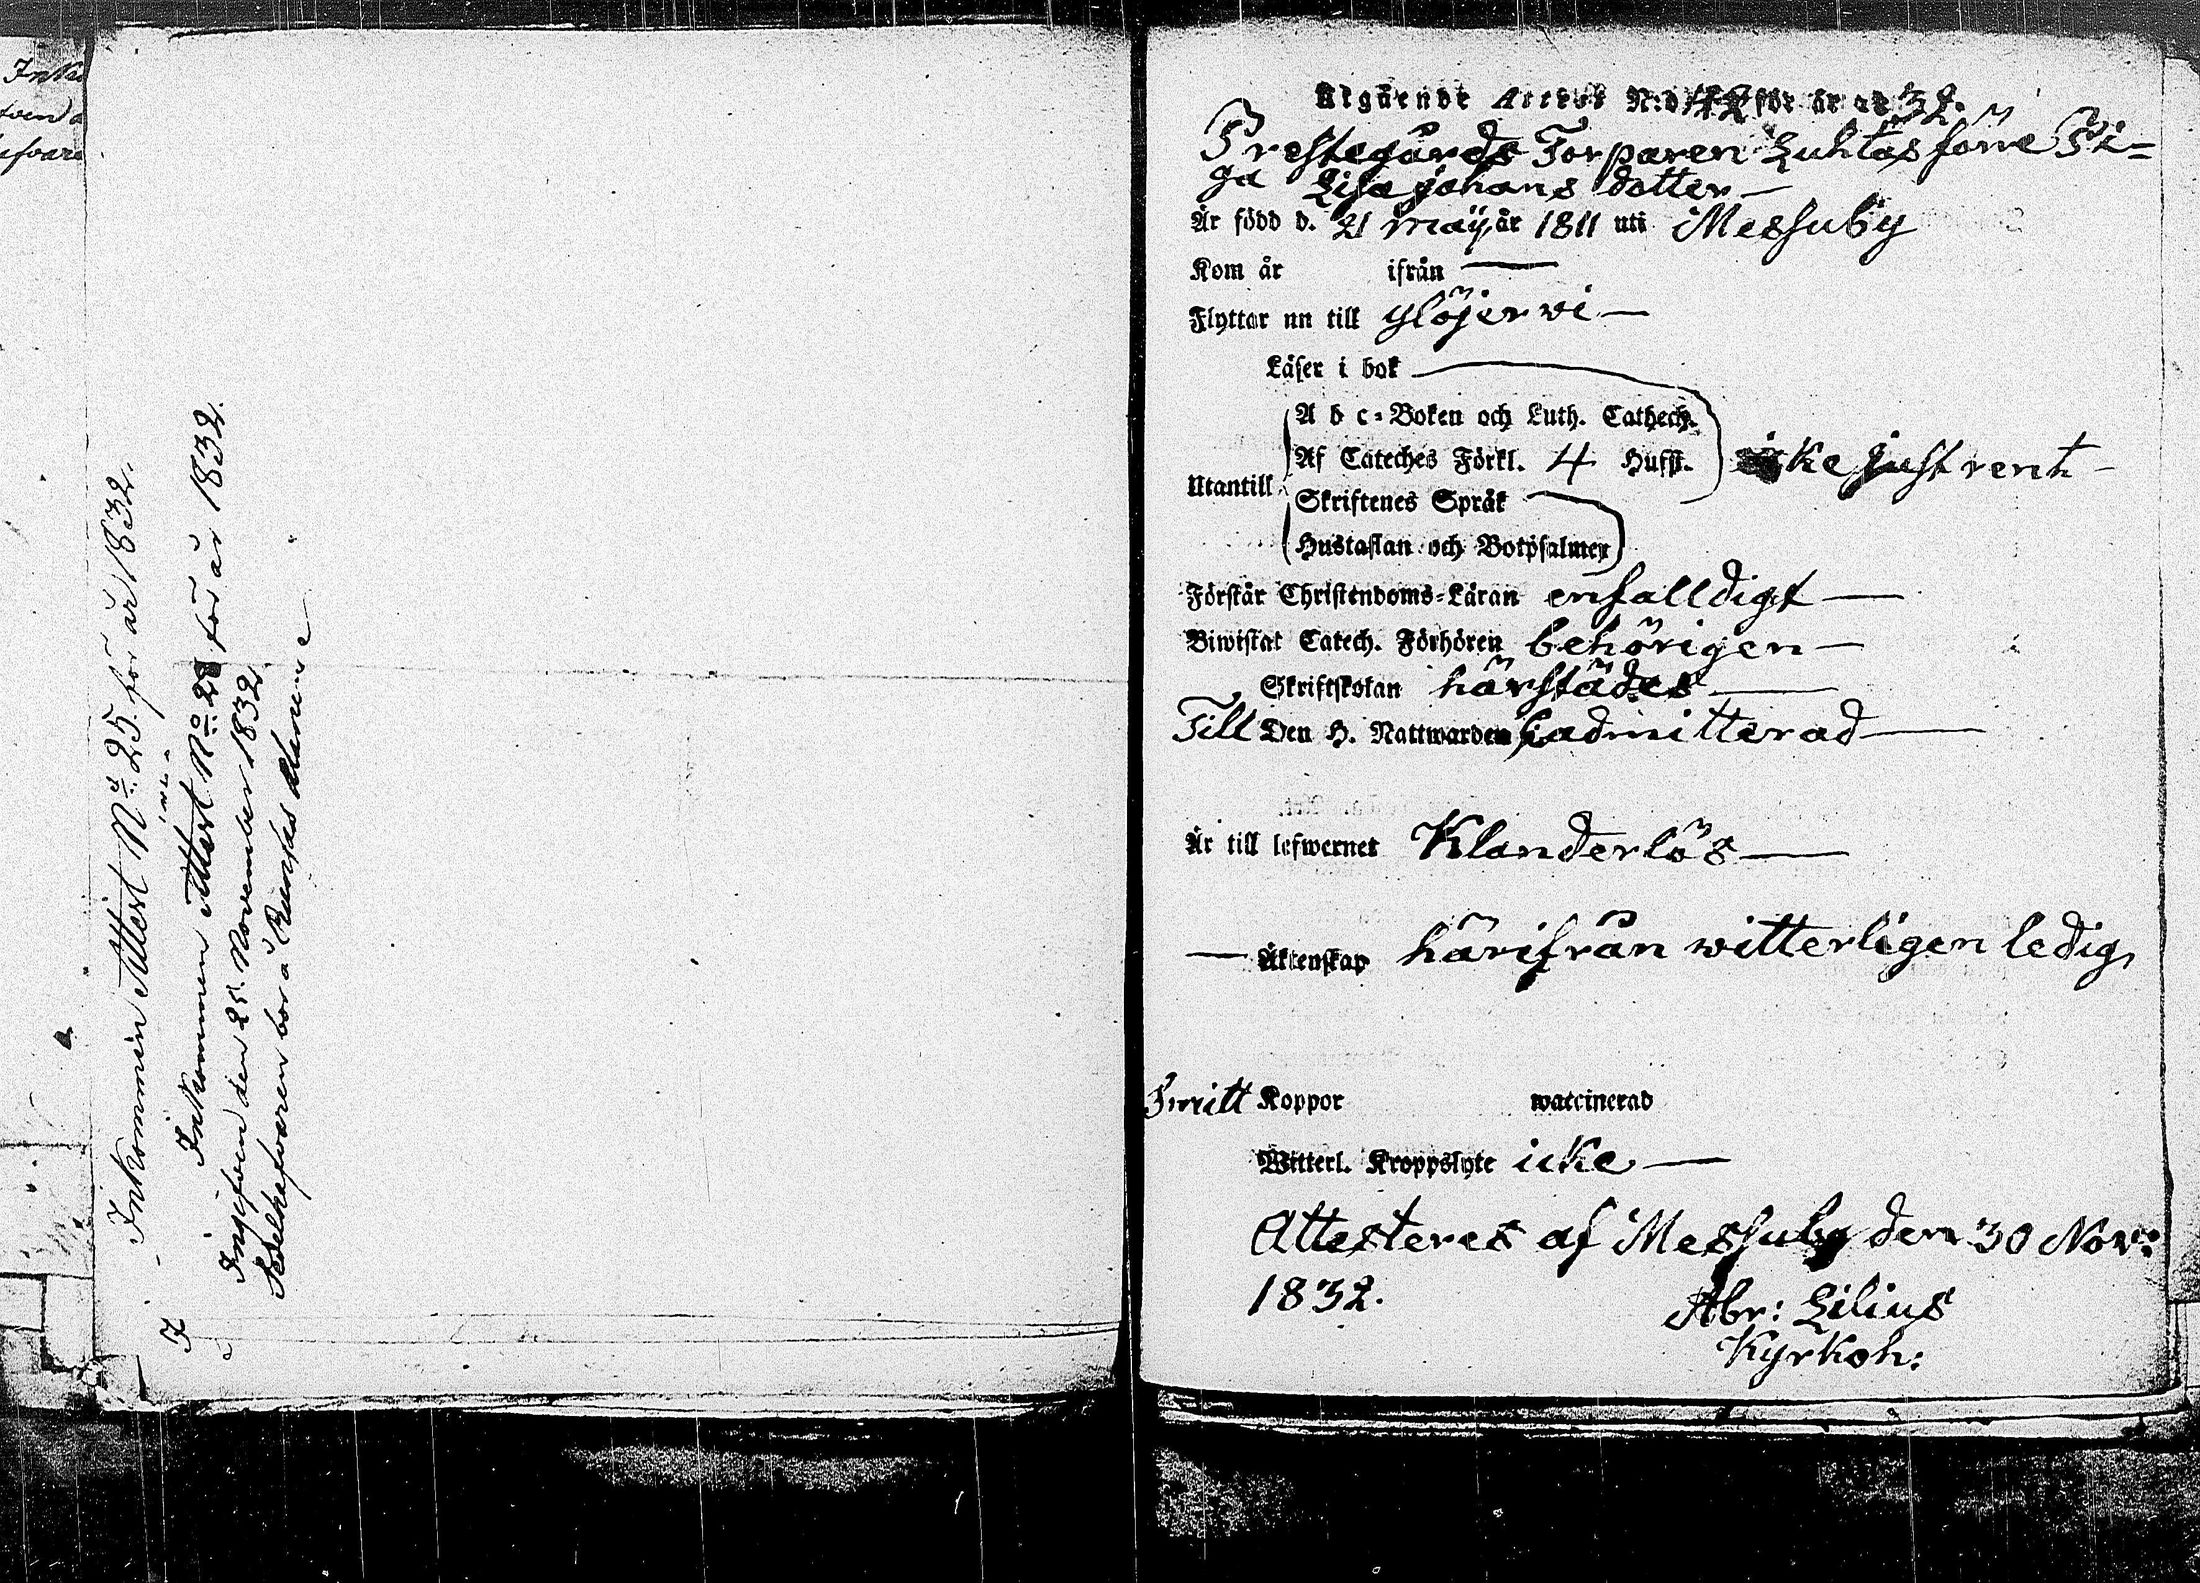 Inko
tven d
efvare
Inkommen Attest No 25. för år 1832.
Inkommen Attest No 28 för år 1832.
Ingifven den 25. November 1832
Sedelhafvaren bor å
Utgående Attest N:o 42 för år 1832.
Prestegårds Torparen Luhtas förre Pi=
ga Lisa Johans dotter —
Är född d. 21 Maÿ år 1811 uti Messuby
Kom år ifrån —
Flyttar nu till Ylöjerwi —
Läser i bok
A b c=Boken och Luth. Cathech.
Af Cateches Förkl. 4 Hufst. icke just rent —
Utantill
Skriftenes Språk
Hustaflan och Botpsalmen
Förstår Christendoms=Läran enfalldigt —
Biwistat Catech. Förhören behörigen —
Skriftskolan härstädes —
Till Den H. Nattwarden admitterad —
Är till lefwernet Klanderlös —
— Äktenskap härifrån witterligen ledig,
Koppor waccinerad
Witterl. Kroppslyte icke —
Attesteres af Messuby den 30 Nov:
1832.
Abr: Lilius
Kyrkoh: